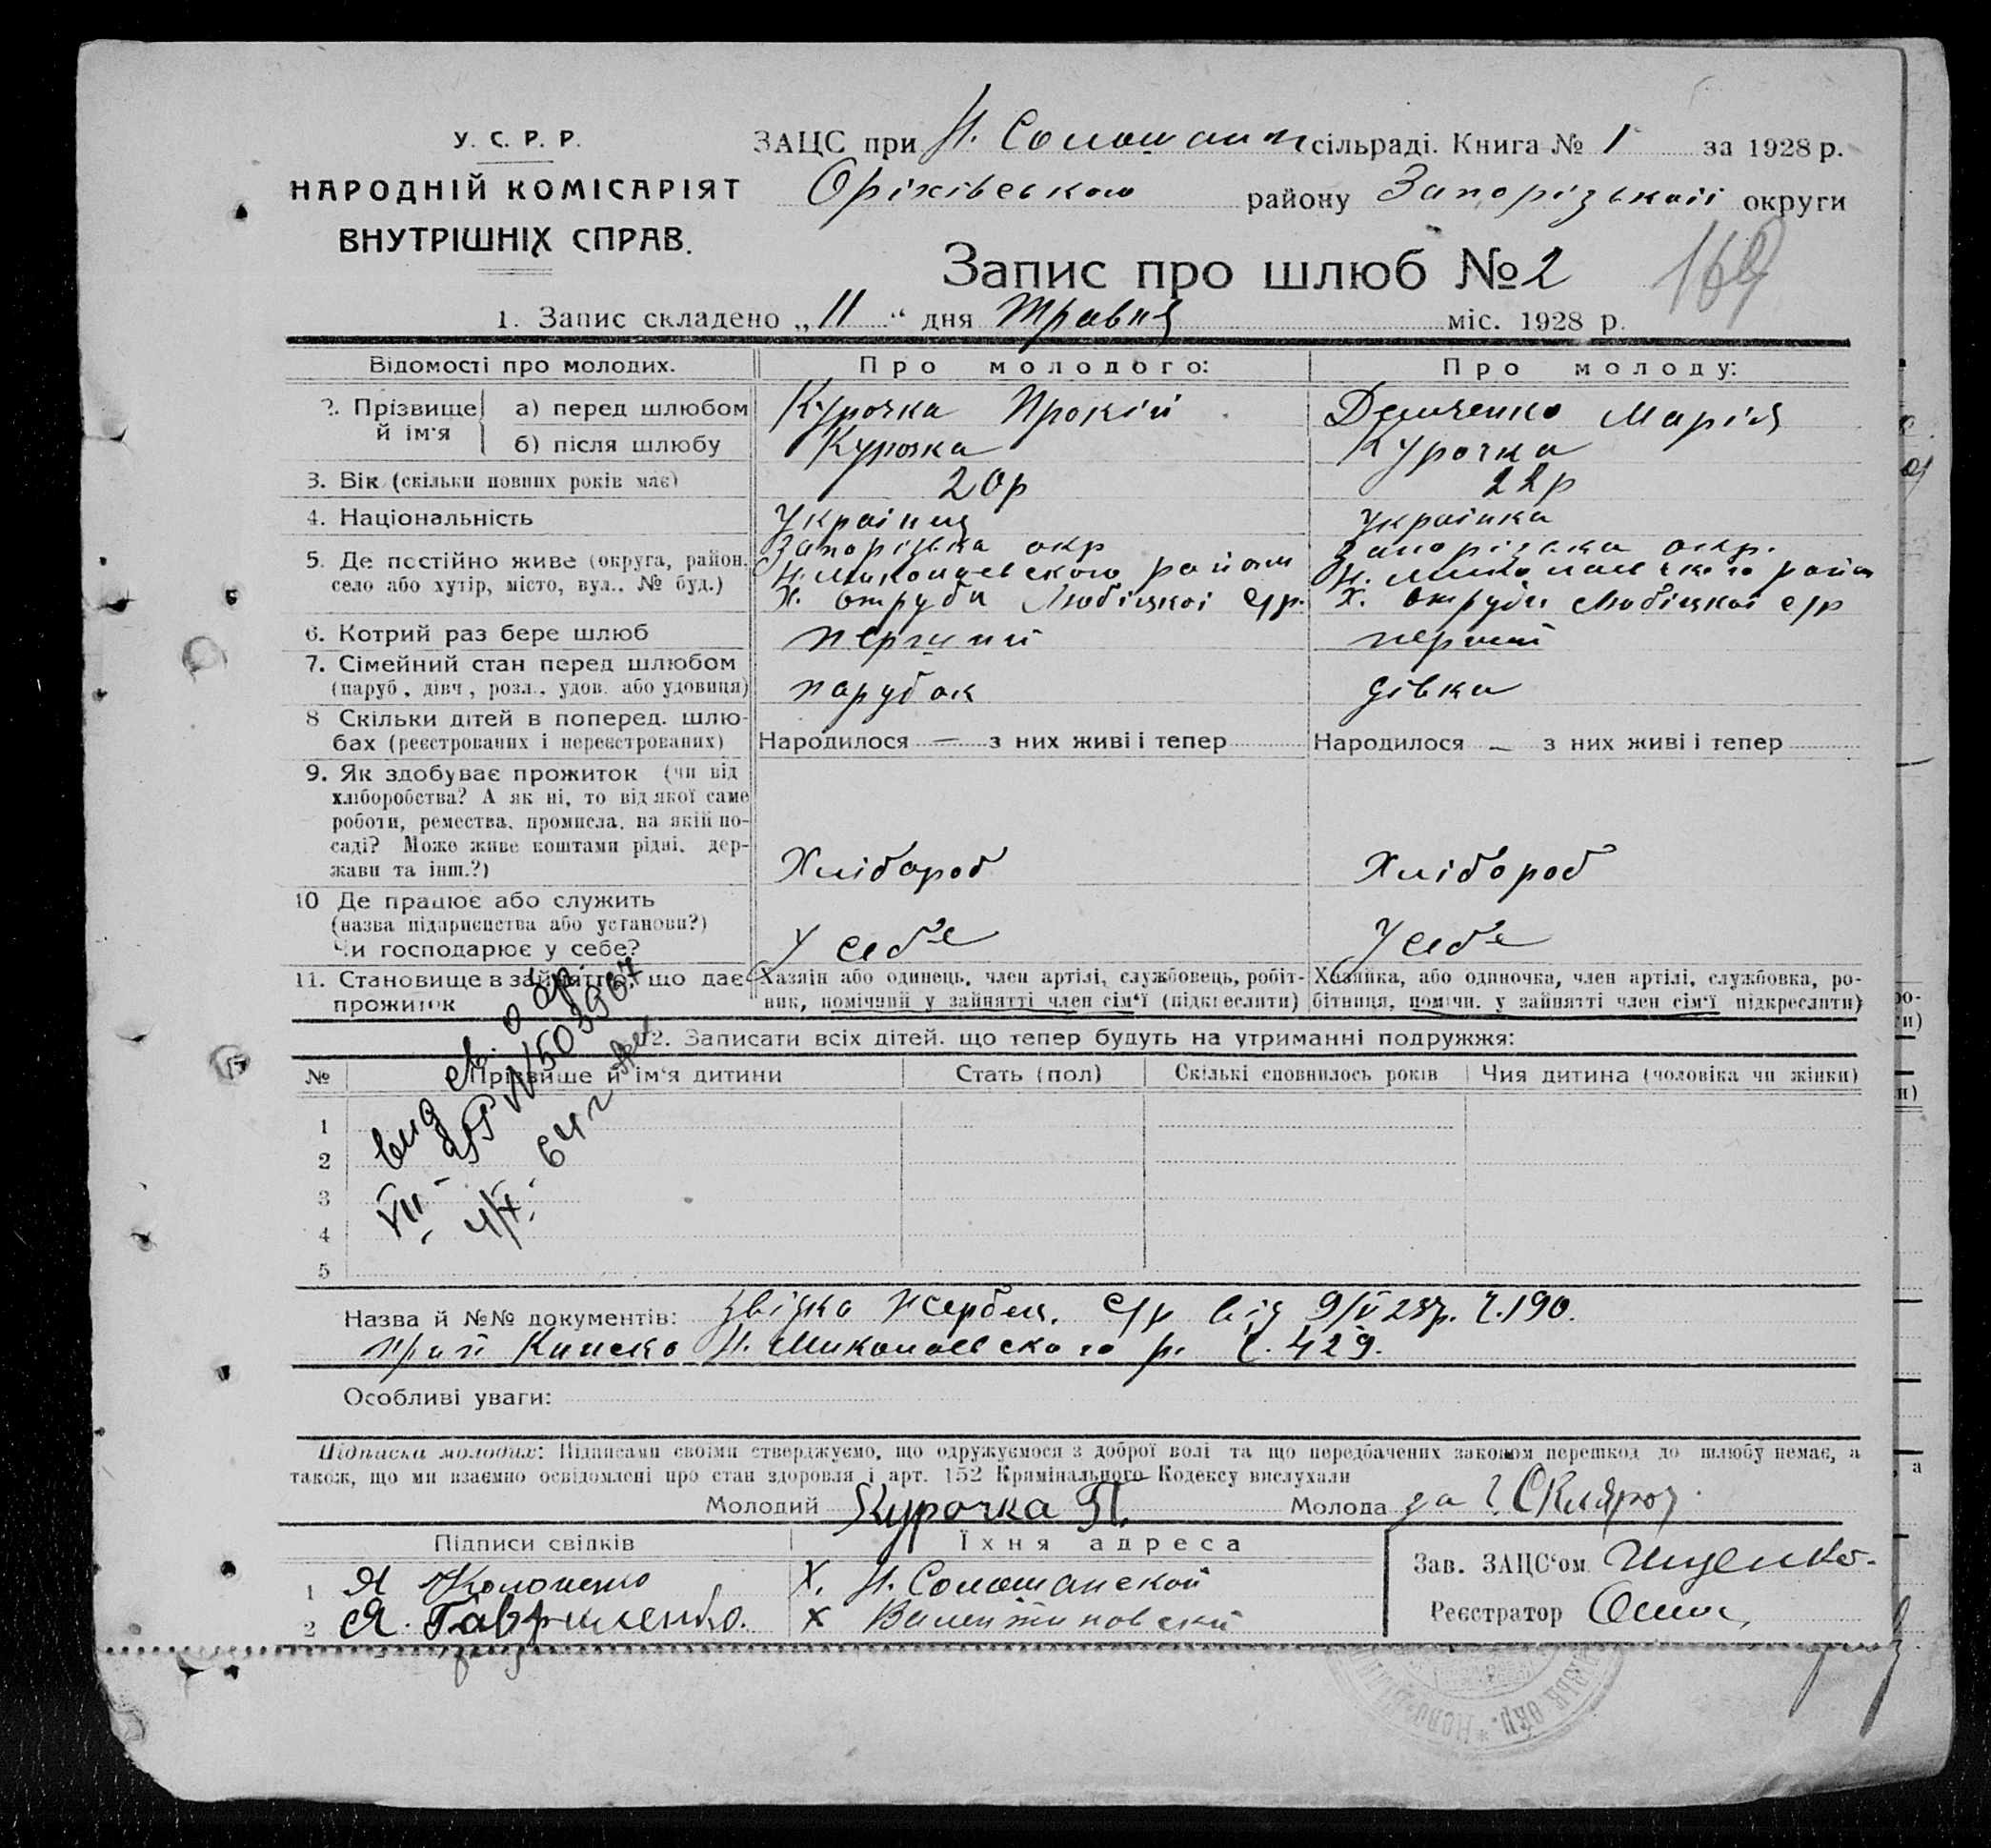 У. С. Р. Р.
НАРОДНІЙ КОМІСАРІЯТ
ВНУТРІШНІХ СПРАВ.
ЗАЦС при Н. Солошан сільраді. Книга № 1 за 1928 р.
Оріхівського району Запорізькоії округи
Запис про шлюб № 2
169
1. Запис складено „ 11 “ дня Травня міс. 1928 р.
Відомості про молодих. Про молодого: Про молоду:
2. Прізвище й ім'я а) перед шлюбом Курочка Прокій Демченко Марія
б) після шлюбу Курочка Курочка
3. Вік (скільки повних років має) 20р 22р
4. Національність Українец українка
5. Де постійно живе (округа, район, село або хутір, місто, вул., № буд.)
Запорізька окр Запорізька окр.
Н. Миколаевского район Н. Миколаевского район
Х. отруби Любіцкоі с/р. Х. отруби Любіцкоі с/р
6. Котрий раз бере шлюб перший перший
7. Сімейний стан перед шлюбом (паруб., дівч., розл., удов. або удовиця) парубок дівка
8 Скільки дітей в поперед. шлюбах (реєстрованих і нереєстрованих) Народилося — з них живі і тепер Народилося — з них живі і тепер
9. Як здобуває прожиток (чи від
хліборобства? А як ні, то від якої саме
роботи, ремества, промисла, на якій по-
саді? Може живе коштами рідні, дер-
жави та інш.?) Хлібороб Хлібороб
10 Де працює або служить
(назва підприєнства або установи?)
Чи господарює у себе? У себе У себе
11. Становище в зайнятті, що дає прожиток
Хазяїн або одинець, член артілі, службовець, робіт-
ник, помічний у зайнятті член сім'ї (підкреслити)
Хазяйка, або одиночка, член артілі, службовка, ро-
бітниця, помічн. у зайнятті член сім'ї підкреслити)
12. Записати всіх дітей, що тепер будуть на утриманні подружжя:
№ Прізвище й ім'я дитини Стать (пол) Скількі сповнилось років Чия дитина (чоловіка чи жінки)
1
2
3
4
5
вид св. о бр.
№ 503967
64 г
Назва й №№ документів: Звідка Жербец. с/р від 9/V 28р. Ч. 190.
Н. Миколаевского р. Ч. 429.
Особливі уваги:
Підписка молодих: Підписами своїми стверджуємо, що одружуємося з доброї волі та що передбачених законом перешкод до шлюбу немає, а
також, що ми взаємно освідомлені про стан здоровля і арт. 152 Крямінального Кодексу вислухали
Молодий Курочка П. Молода за
Підписи свідків Їхня адреса
1 Я Х. Н. Солошанской
2 Я. Гавриленко. Х Валентиновский
Зав. ЗАЦС'ом Іщенко.
Реєстратор